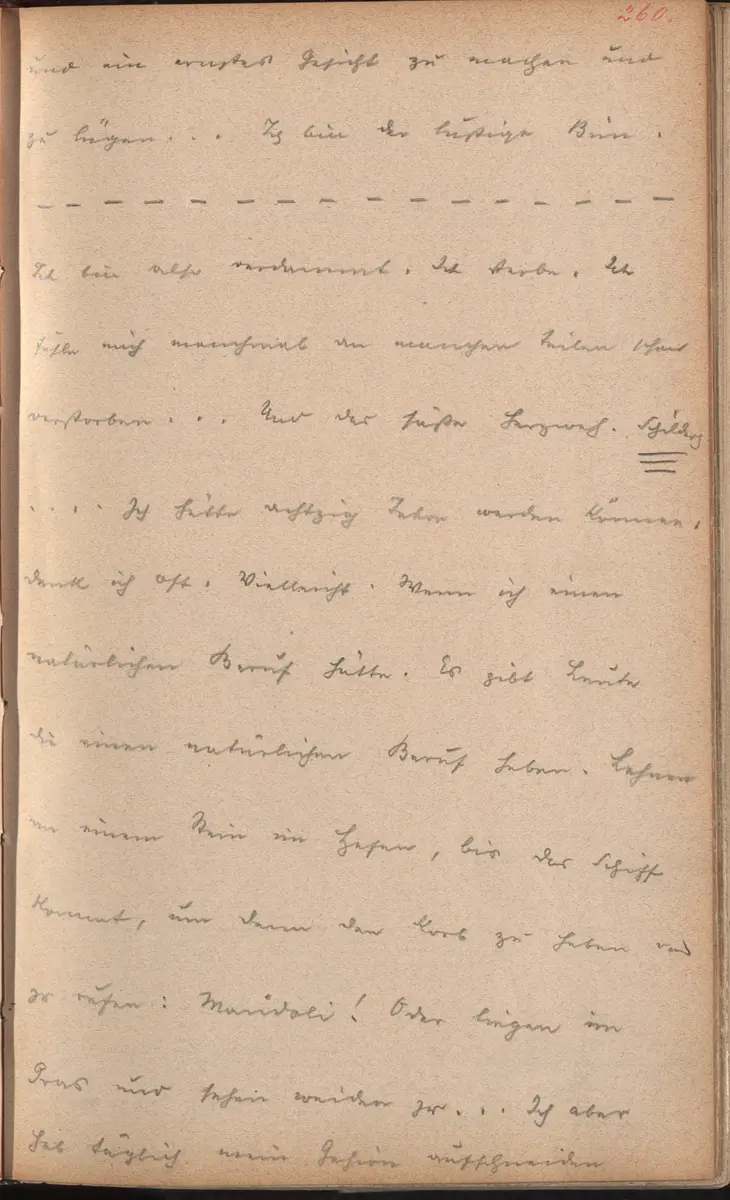 260.
und ein ernstes Gesicht zu machen und
zu lügen... Ich bin der lustige
Ich bin also verdammt. Ich sterbe. Ich
fühle mich manchmal an manchen Teilen schon
verstorben... Und das süße Herzweh.
.... Ich hätte achtzig Jahre werden können,
denk ich oft. Vielleicht. Wenn ich einen
natürlichen Beruf hätte. Es gibt Leute
die einen natürlichen Beruf haben. Lehnen
an einem Stein im Hafen, bis das Schiff
kommt, um dann den Korb zu heben und
zu rufen: Mandoli! Oder liegen im
Gras und sehen weiden zu... Ich aber
hab täglich mein Gehirn aufschneiden